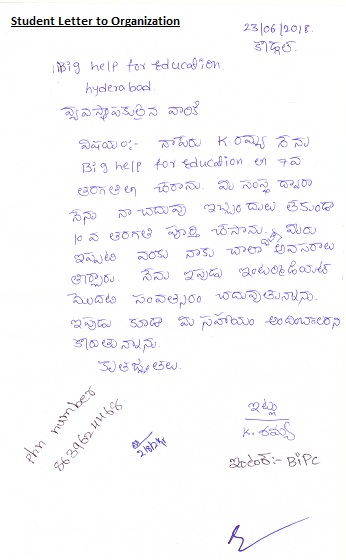 Student Letter to Organization
23/06/2018.
కొడ్గల్.
Big help for education
hyderabad.
వ్యవస్థాపకులైన వారికి
విషయం:- నాపేరు K రమ్య నేను
Big help for education లో 7వ
తరగతిలో చేరాను. మీ సంస్థ ద్వారా
నేను నా చదువు ఇబ్బందులు లేకుండా
10 వ తరగతి పూర్తి చేసాను. మీరు
ఇప్పటి వరకు నాకు చాలా అవసరాలు
తీర్చారు నేను ఇపుడు ఇంటర్మీడియేట్
మొదటి సంవత్సరం చదువుతున్నాను.
ఇపుడు కూడా మీ సహాయం అందించాలని
కోరుతున్నాను.
కృతజ్ఞతలు.
ఇట్లు
K. రమ్య
ఇంటర్:- BiPC
phn number